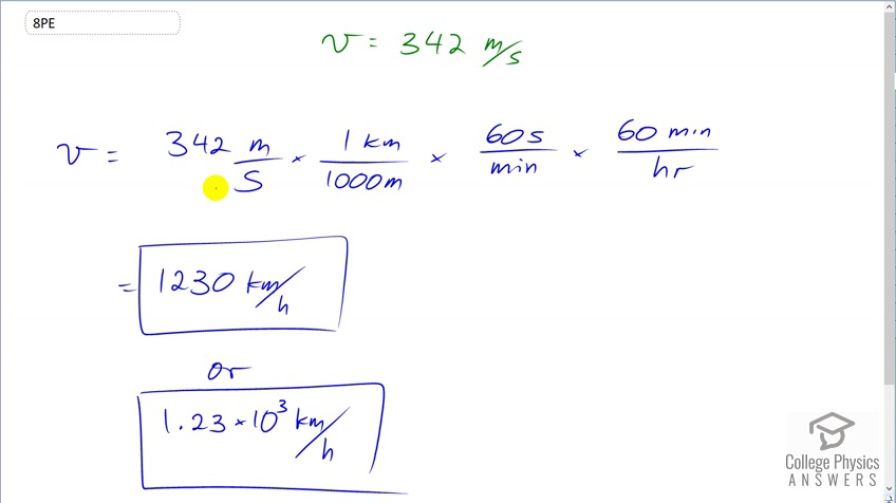 8PE
v = 342 m/s
v = 342 m/s × 1 km/1000m × 60s/min × 60 min/hr
= 1230 km/h
or
1.23 × 10³ km/h
College Physics
ANSWERS